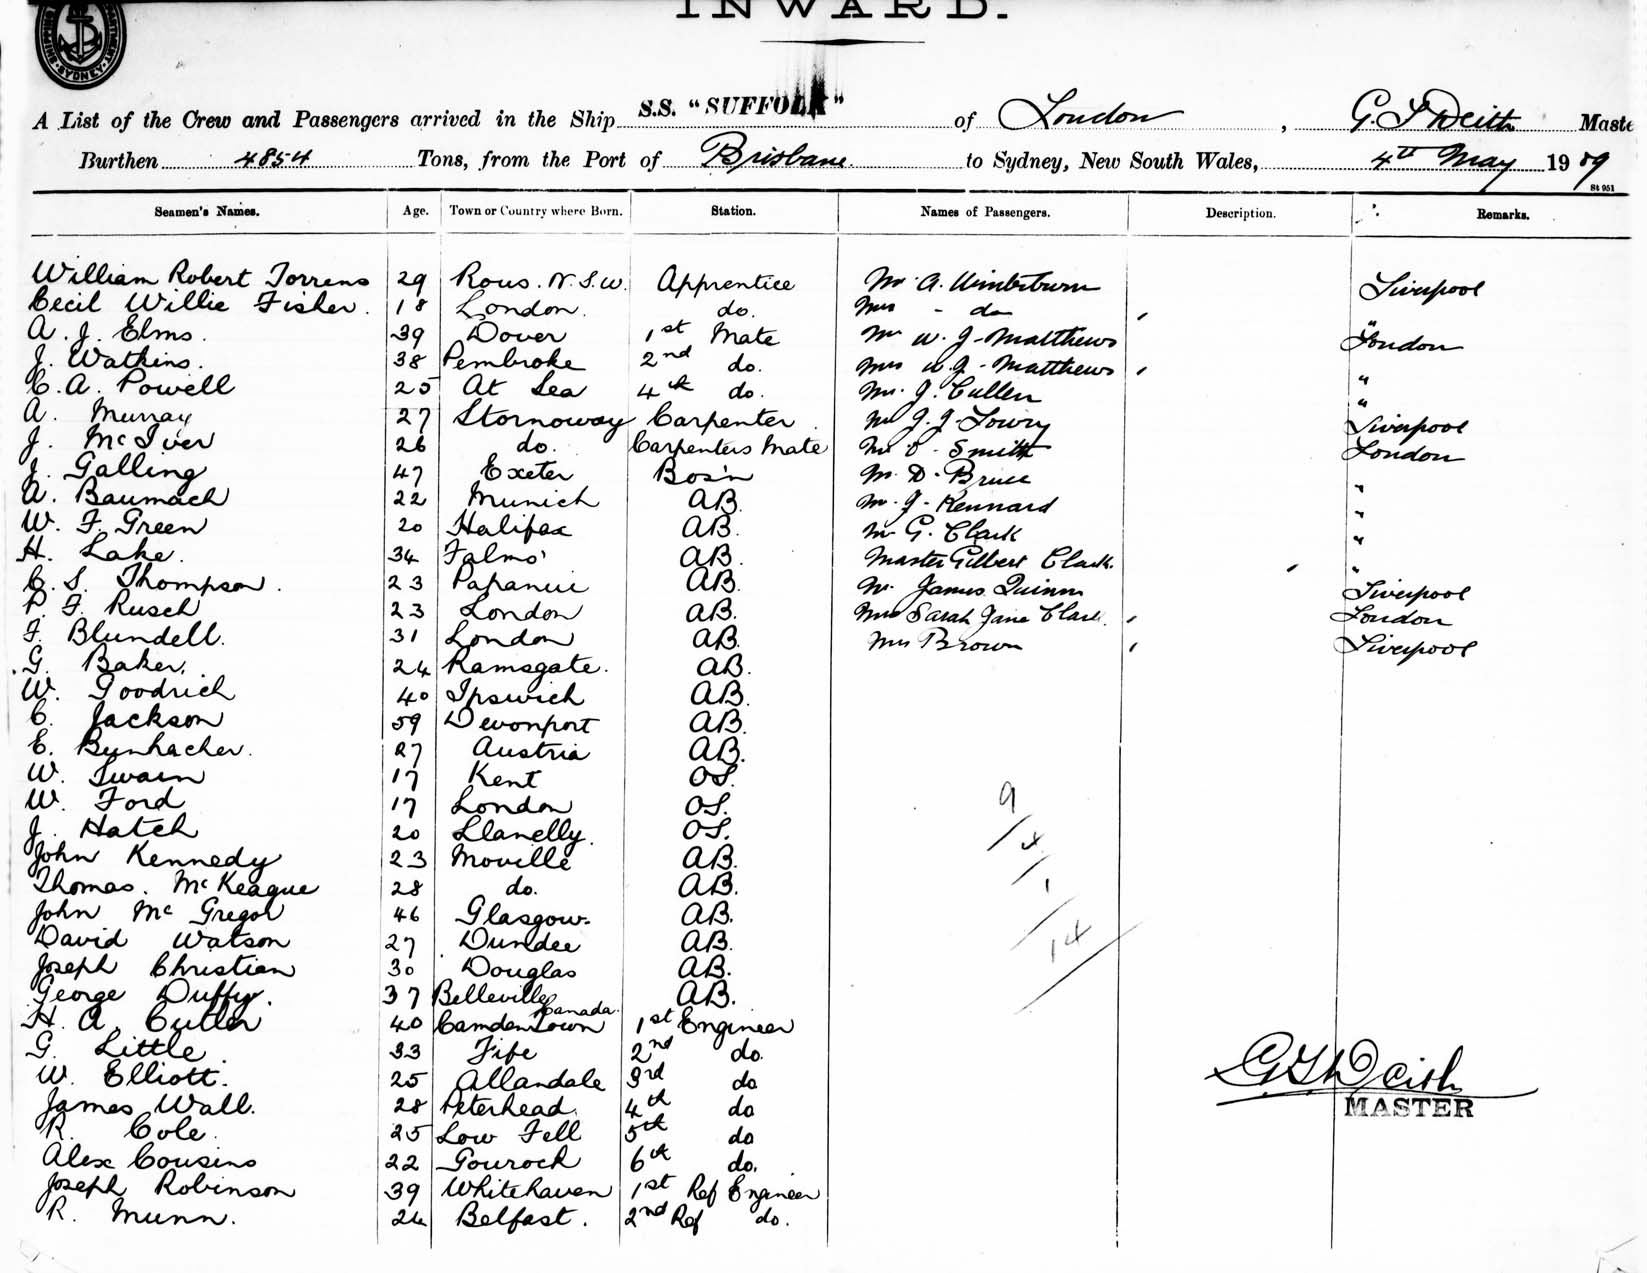 INWARD.
SYDNEY
A List of the Crew and Passengers arrived in the Ship S.S. "SUFFOLK" of London, G. Deith Maste
Burthen 4854 Tons, from the Port of Brisbane. to Sydney, New South Wales, 4th May 1909
St 951
Seamen's Names. Age. Town or Country where Born. Station. Names of Passengers. Description. Remarks.
William Robert Torrens 29 Rous. N.S.W. Apprentice Mr A. Winterburn Liverpool
Cecil Willie Fisher. 18 London. do. Mrs - do "
A. J. Elms. 39 Dover 1st Mate Mr W. J. Matthews London
J. Watkins. 38 Pembroke 2nd do. Mrs W. J. Matthews "
C. A. Powell 25 At Sea 4th do. Mr. J. Cullen "
A. Murray 27 Stornoway Carpenter. Mr J. J. Lowry Liverpool
J. McIver 26 do. Carpenters Mate Mr Smith London
J. Galling 47 Exeter Bos'n Mr. D. Bruce "
A. Baumach 22 Munich AB. Mr. J. Kennard "
W. F. Green 20 Halifax AB. Mr G. Clark "
H. Lake. 34 Falmo' AB. Master Gilbert Clark. "
C. S. Thompson. 23 Papanui AB. Mr. James Quinn Liverpool
P. F. Rusch 23 London AB. Mrs Sarah Jane Clark. London
F. Blundell. 31 London AB. Mrs Brown Liverpool
G. Baker. 24 Ramsgate. AB.
W. Goodrich 40 Ipswich AB.
C. Jackson 59 Devonport AB.
E. Bunhacher. 27 Austria AB.
W. Swain 17 Kent OS.
W. Ford 17 London OS.
J. Hatch 20 Llanelly. OS.
John Kennedy 23 Moville AB.
Thomas. McKeague 28 do. AB.
John McGregor 46 Glasgow. AB.
David Watson 27 Dundee AB.
Joseph Christian 30 Douglas AB.
George Duffy. 37 Belleville Canada. AB.
H. A. Cutler 40 Camden Town 1st Engineer
G. Little. 33 Fife 2nd do.
W. Elliott. 25 Allandale 3rd do
James Wall. 28 Peterhead. 4th do
R. Cole. 25 Low Fell 5th do
Alex Cousins 22 Gourock 6th do.
Joseph Robinson 39 Whitehaven 1st Ref Engineer
R. Munn. 24 Belfast. 2nd Ref do.
9
4
1
14
Deith
MASTER